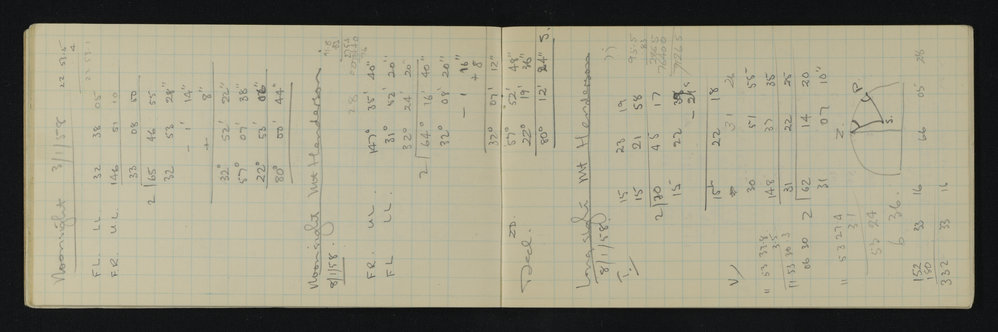 Noonsight 3/1/58 22 53.5
FL. LL. 32 38 05
FR. UL. 146 51 10
33 08 50
2 | 65 46 55
32 53 28"
- 1' 14"
+ 8"
32° 52' 22"
57° 07' 38"
22° 53' 06"
80° 00' 44"
Noonsight Mt Henderson
8/1/58.
FR. UL. 147° 35' 40"
FL LL. 31° 52' 20"
32° 24' 20
2 | 64° 16' 40"
32° 08' 20"
- 1 16"
+ 8
ZD. 32° 07' 12"
57° 52' 48"
Decl. 22° 19' 36"
80° 12' 24" S.
Longsight Mt Henderson
8/1/58.
T. 15 23 19
15 21 58
2 | 30 45 17
15 22
15 22 18
V
30 51 55
148 37 35
31 22 25
2 | 62 14 20
31 07 10"
11 53
06 30
11 53 27.4
31
53 24
6 36.
Z P. S.
152 33 16 66 05 28
180
332 33 16